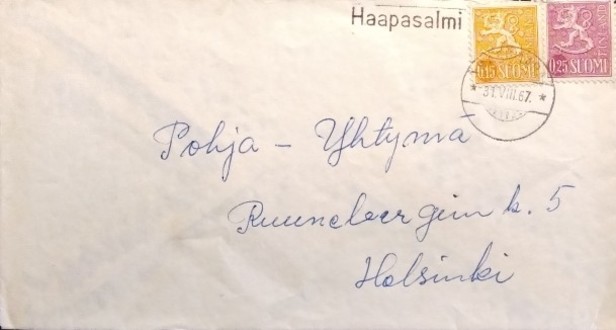 Haapasalmi
0,15 SUOMI
0,25 SUOMI
* 31.VIII.67. *
Pohja - Yhtymä
Runeebergin k. 5
Helsinki